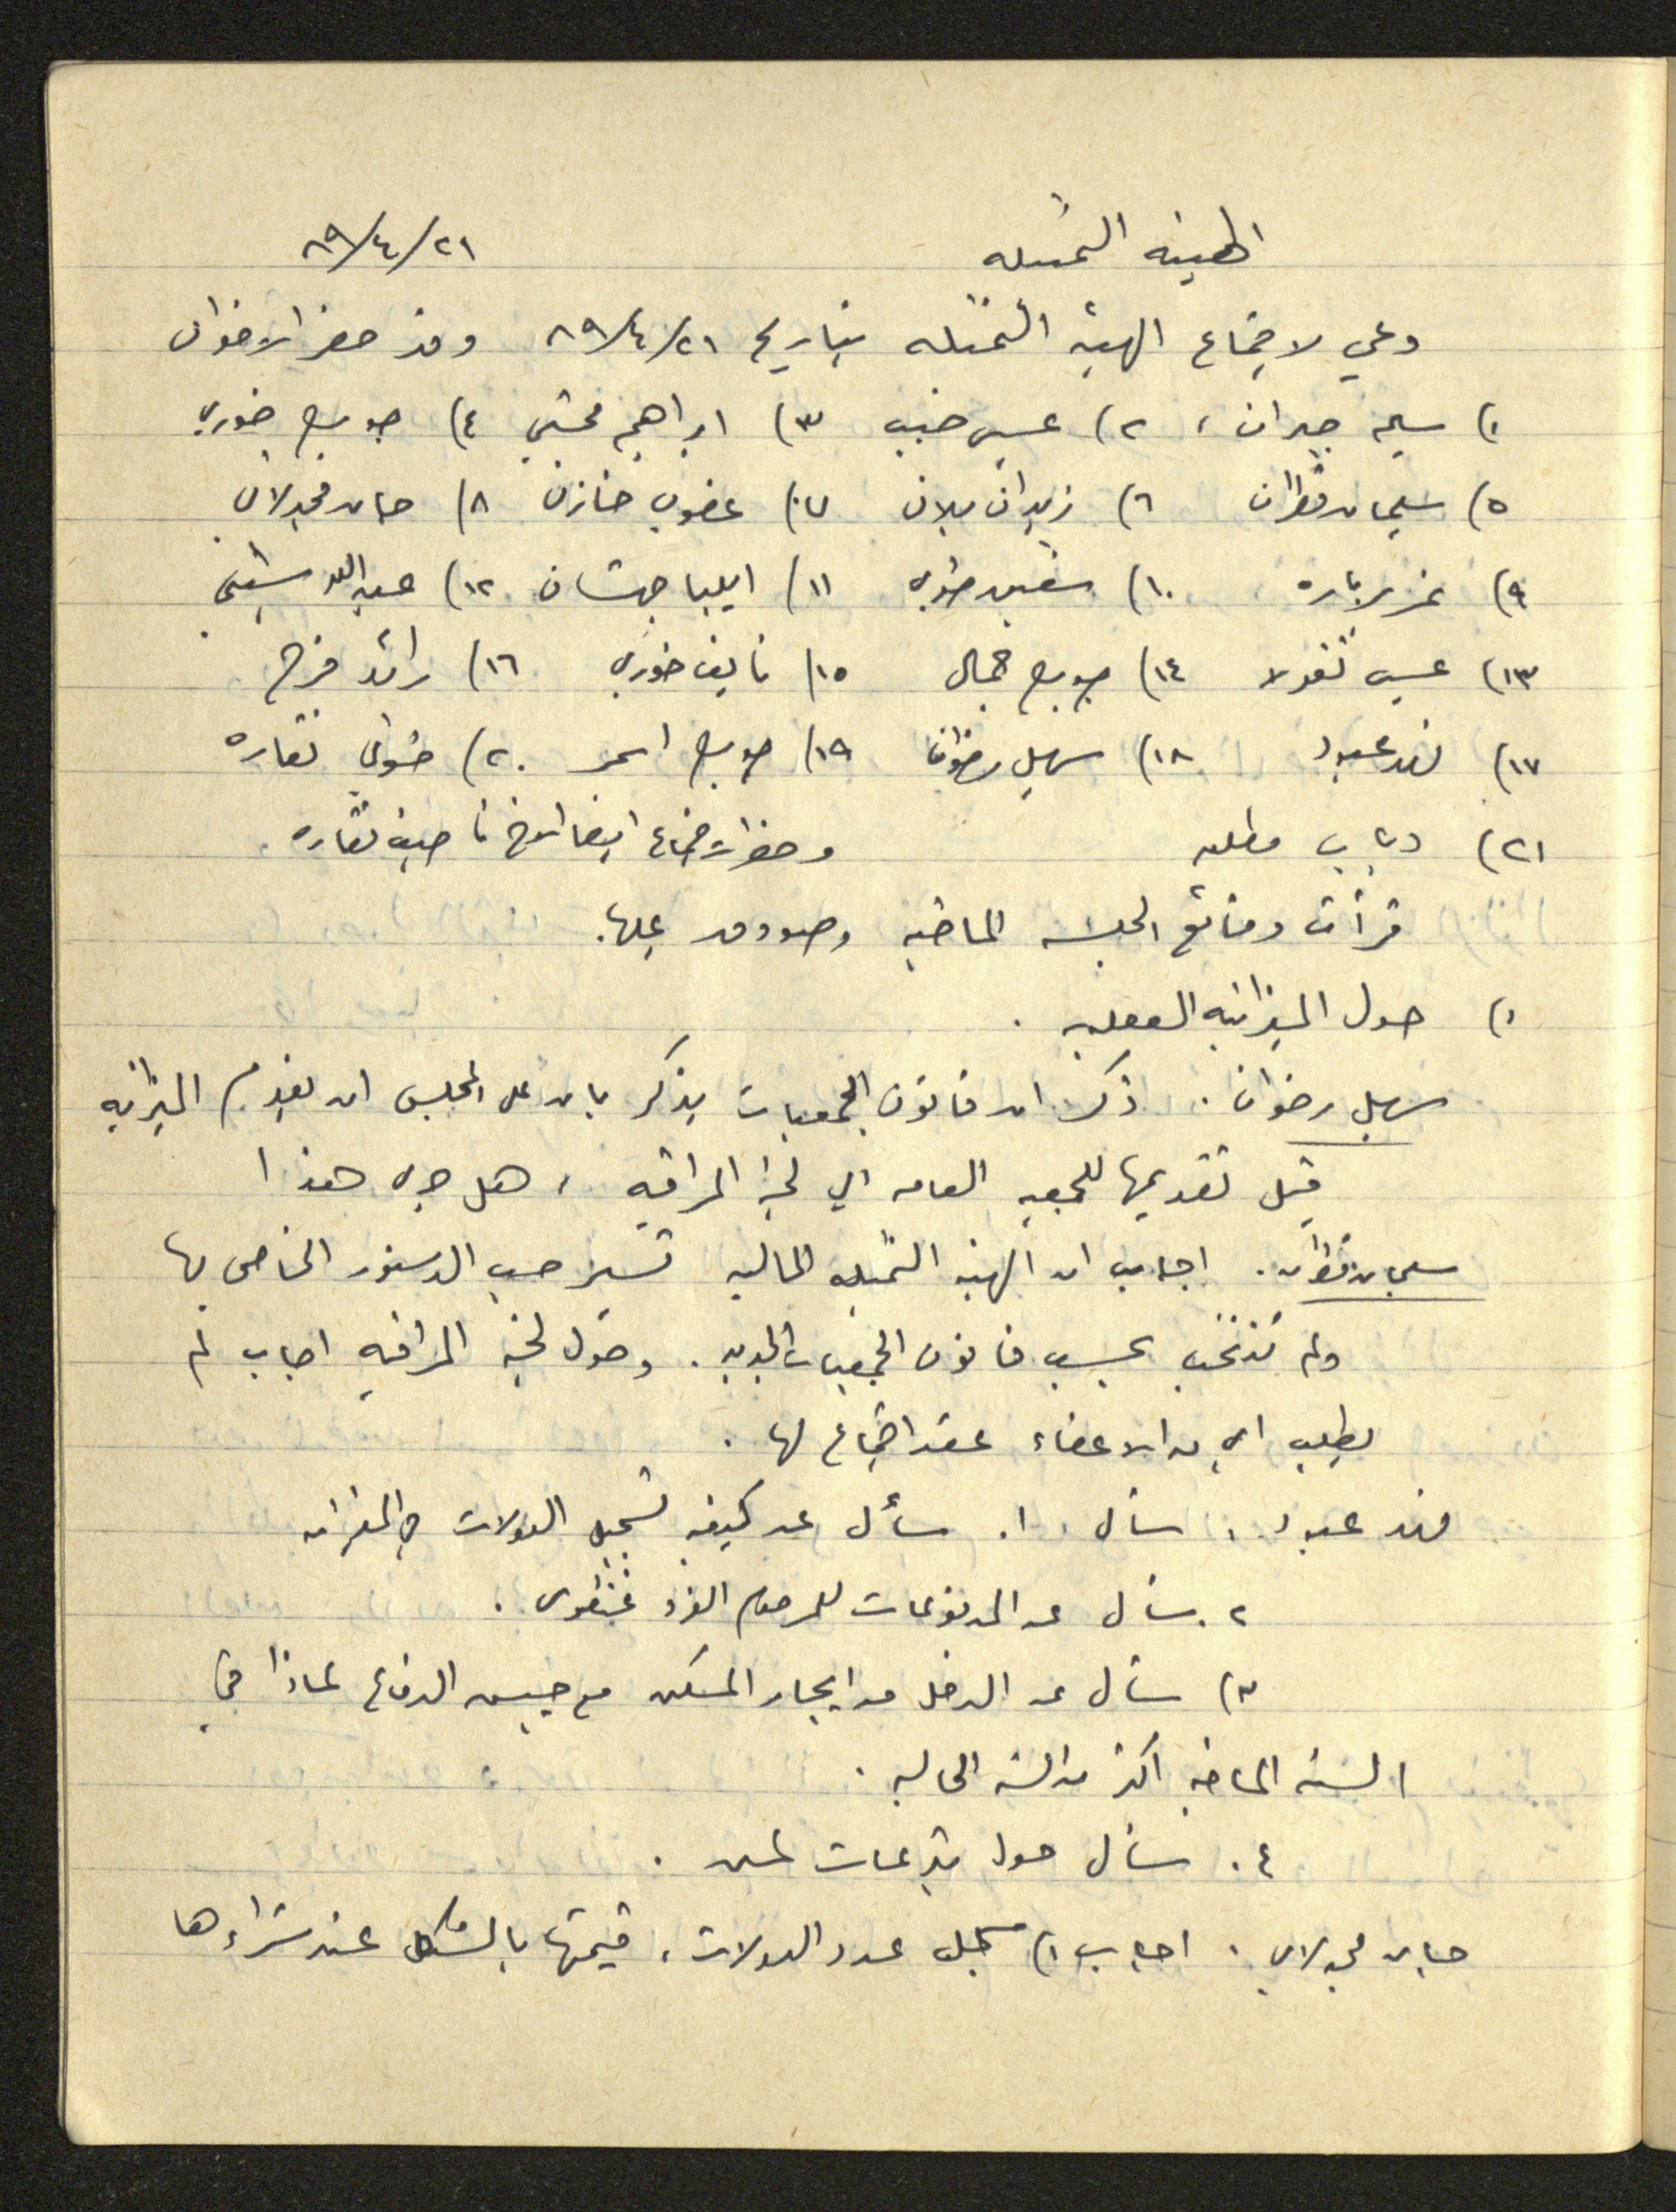 الهيئة الممثله ٢١/٤/٨٩
دعي لاجتماع الهيئة الممثله بتاريخ ٢١/٤/٨٩ وقد حضر الاخوان
١) سليم جبران، ٢) عيسى حبيب ٣) ابراهيم محشي ٤) جورج خوري
٥) سليمان قطران ٦) زيدان بلان ٧) عفوي خازن ٨) جابر مجدلاني
٩) نمر بلاره ١٠) سعيد خوري ١١) ايليا جهشان ١٢) عبدالله شيتي
١٣) عيسى نقولا ١٤) جورج جمال ١٥) نايف خوري ١٦) رائد فرح
١٧) فهد عبود ١٨) سهيل رضوان ١٩) جورج اسمر ٢٠) شوقي نقاره
٢١) دياب مطلق وحضر الاجتماع ايضا الاخ ناصيف نقاره.
قرأت وقائع الجلسه الماضيه وصودق عليها.
١) حول الميزانيه الفعليه.
سهيل رضوان. ذكر ان قانون الجمعيات يذكر بان على المجلس ان يقدم الميزانيه
قبل تقديمها للجمعيه العامه الى لجنة المراقبه، هل جرى هذا
سليمان قطران. اجاب ان الهيئه الممثله الحاليه تسير حسب الدستور الخاص بها
ولم تنتخب بحسب قانون الجمعيات الجديد. وحول لجنة المراقبه اجاب لم
يطلب اي من الاعضاء عقد اجتماع لها.
فهد عبود، سأل ١. سأل عن كيفية تسجيل الدولارات في الميزانيه
٢. سأل عن المدفوعات للمرحوم الفرد
٣) سأل عن الدخل من ايجار المسكن مع جيش الدفاع لماذا في
السنه الماضيه اكثر من السنه الحاليه.
٤. سأل حول تبرعات لمن.
جابر مجدلاني. اجاب ١) سجل عدد الدولارات، قيمتها بالشيكل عند شراءها